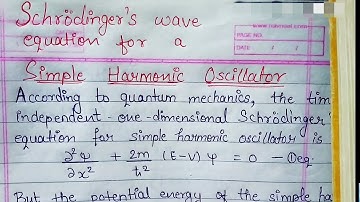 Schrödinger's wave
equation for a
PAGE NO.
DATE / /
Simple Harmonic Oscillator
According to quantum mechanics, the tim
independent-one-dimensional Schrödinger'
equation for simple harmonic oscillator is
∂²ψ/∂x² + 2m/ħ² (E-V) ψ = 0 — ① eq.
But the potential energy of the simple ha